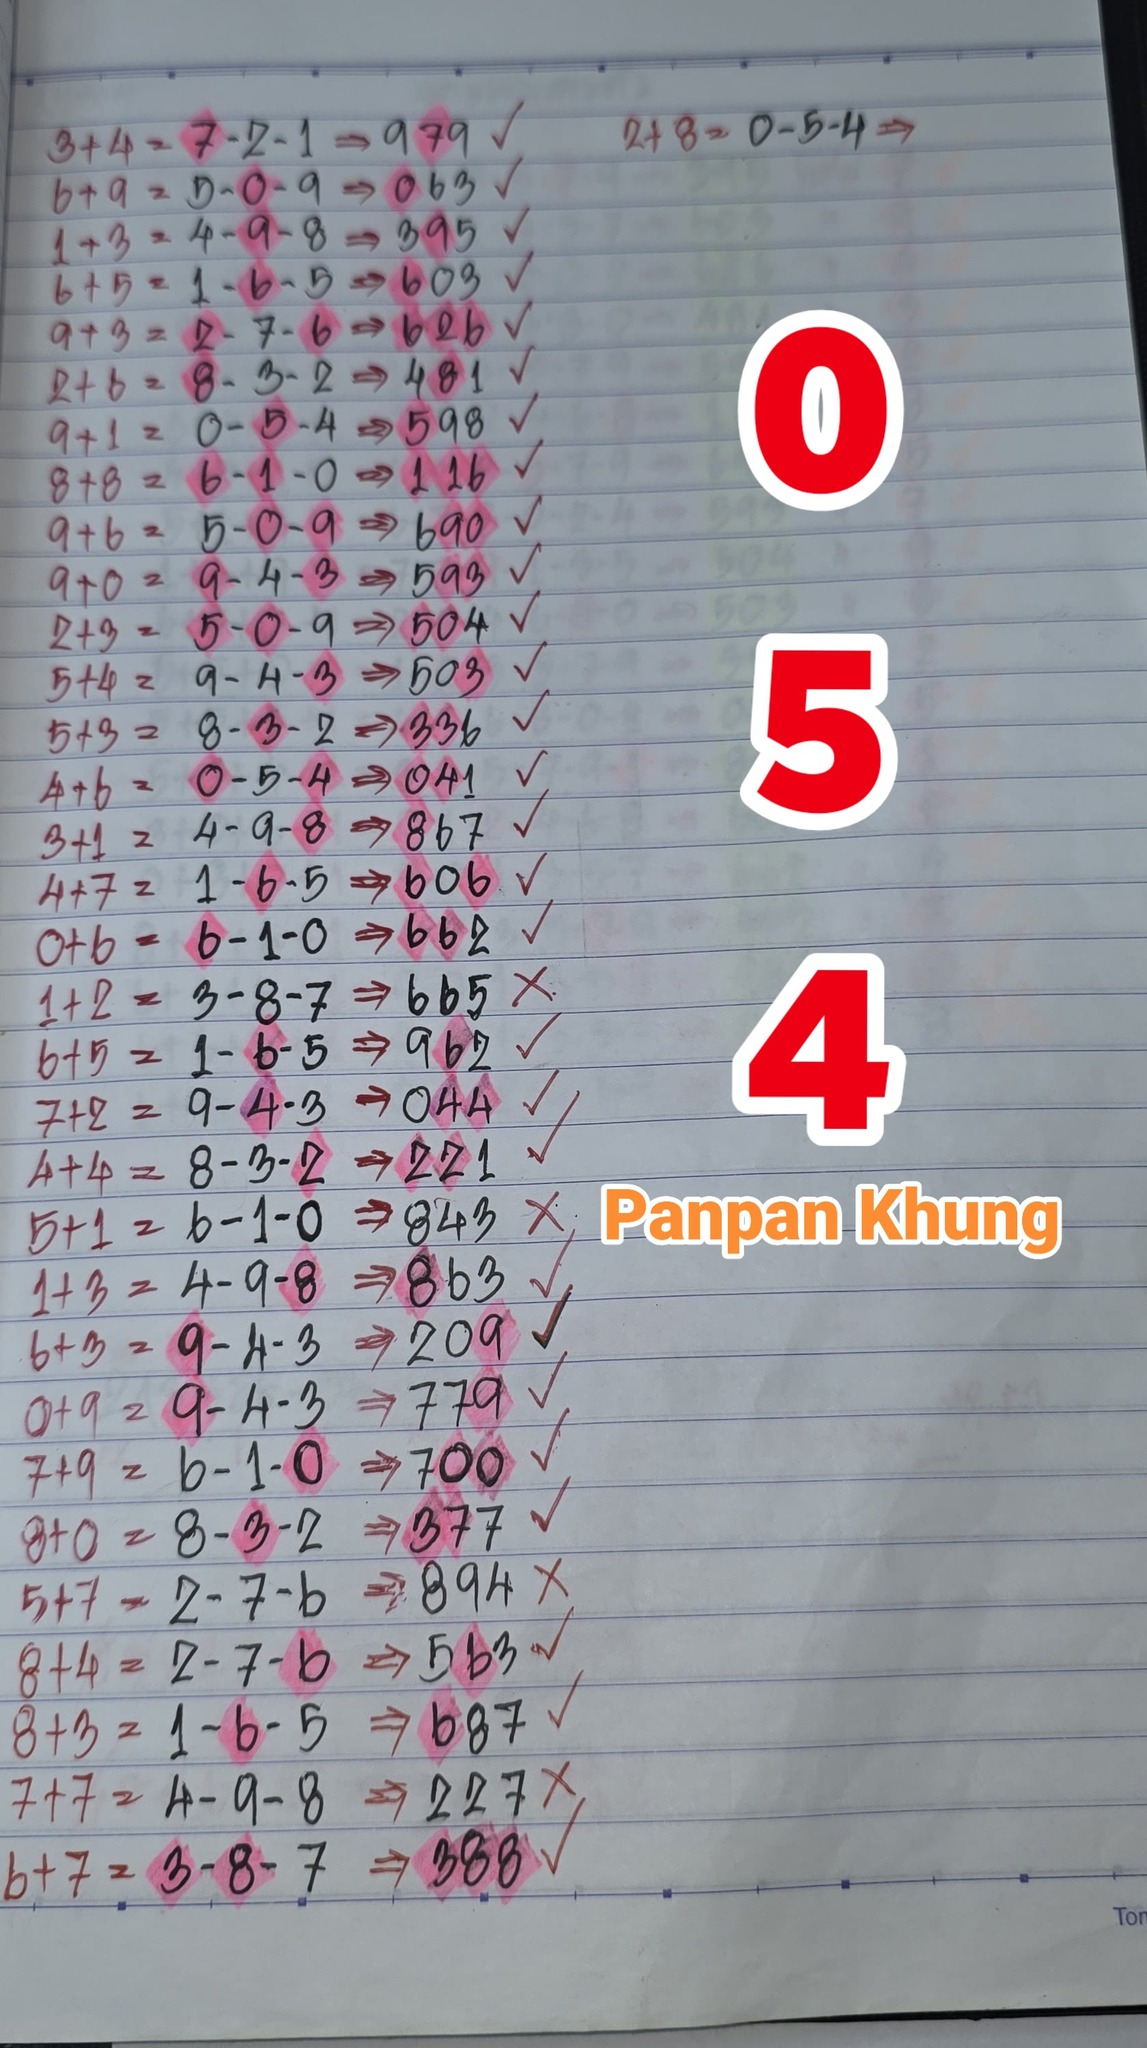 3+4 = 7-2-1 ⇒ 979 ✓
6+9 = 5-0-9 ⇒ 063 ✓
1+3 = 4-9-8 ⇒ 395 ✓
6+5 = 1-6-5 ⇒ 603 ✓
9+3 = 2-7-6 ⇒ 626 ✓
2+6 = 8-3-2 ⇒ 481 ✓
9+1 = 0-5-4 ⇒ 598 ✓
8+8 = 6-1-0 ⇒ 116 ✓
9+6 = 5-0-9 ⇒ 690 ✓
9+0 = 9-4-3 ⇒ 593 ✓
2+3 = 5-0-9 ⇒ 504 ✓
5+4 = 9-4-3 ⇒ 503 ✓
5+3 = 8-3-2 ⇒ 336 ✓
4+6 = 0-5-4 ⇒ 041 ✓
3+1 = 4-9-8 ⇒ 867 ✓
4+7 = 1-6-5 ⇒ 606 ✓
0+6 = 6-1-0 ⇒ 662 ✓
1+2 = 3-8-7 ⇒ 665 ✗
6+5 = 1-6-5 ⇒ 962 ✓
7+2 = 9-4-3 ⇒ 044 ✓
4+4 = 8-3-2 ⇒ 221 ✓
5+1 = 6-1-0 ⇒ 843 ✗
1+3 = 4-9-8 ⇒ 863 ✓
6+3 = 9-4-3 ⇒ 209 ✓
0+9 = 9-4-3 ⇒ 779 ✓
7+9 = 6-1-0 ⇒ 700 ✓
8+0 = 8-3-2 ⇒ 377 ✓
5+7 = 2-7-6 ⇒ 894 ✗
8+4 = 2-7-6 ⇒ 563 ✓
8+3 = 1-6-5 ⇒ 687 ✓
7+7 = 4-9-8 ⇒ 227 ✗
6+7 = 3-8-7 ⇒ 388 ✓
2+8 = 0-5-4 ⇒
0
5
4
Panpan Khung